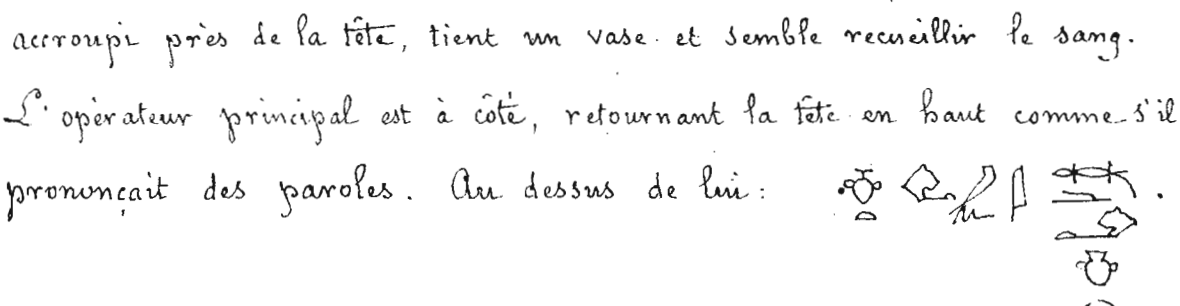 accroupi près de la tête, tient un vase et semble recueillir le sang.
L'opérateur principal est à côté, retournant la tête en haut comme s'il
prononçait des paroles. Au dessus de lui :